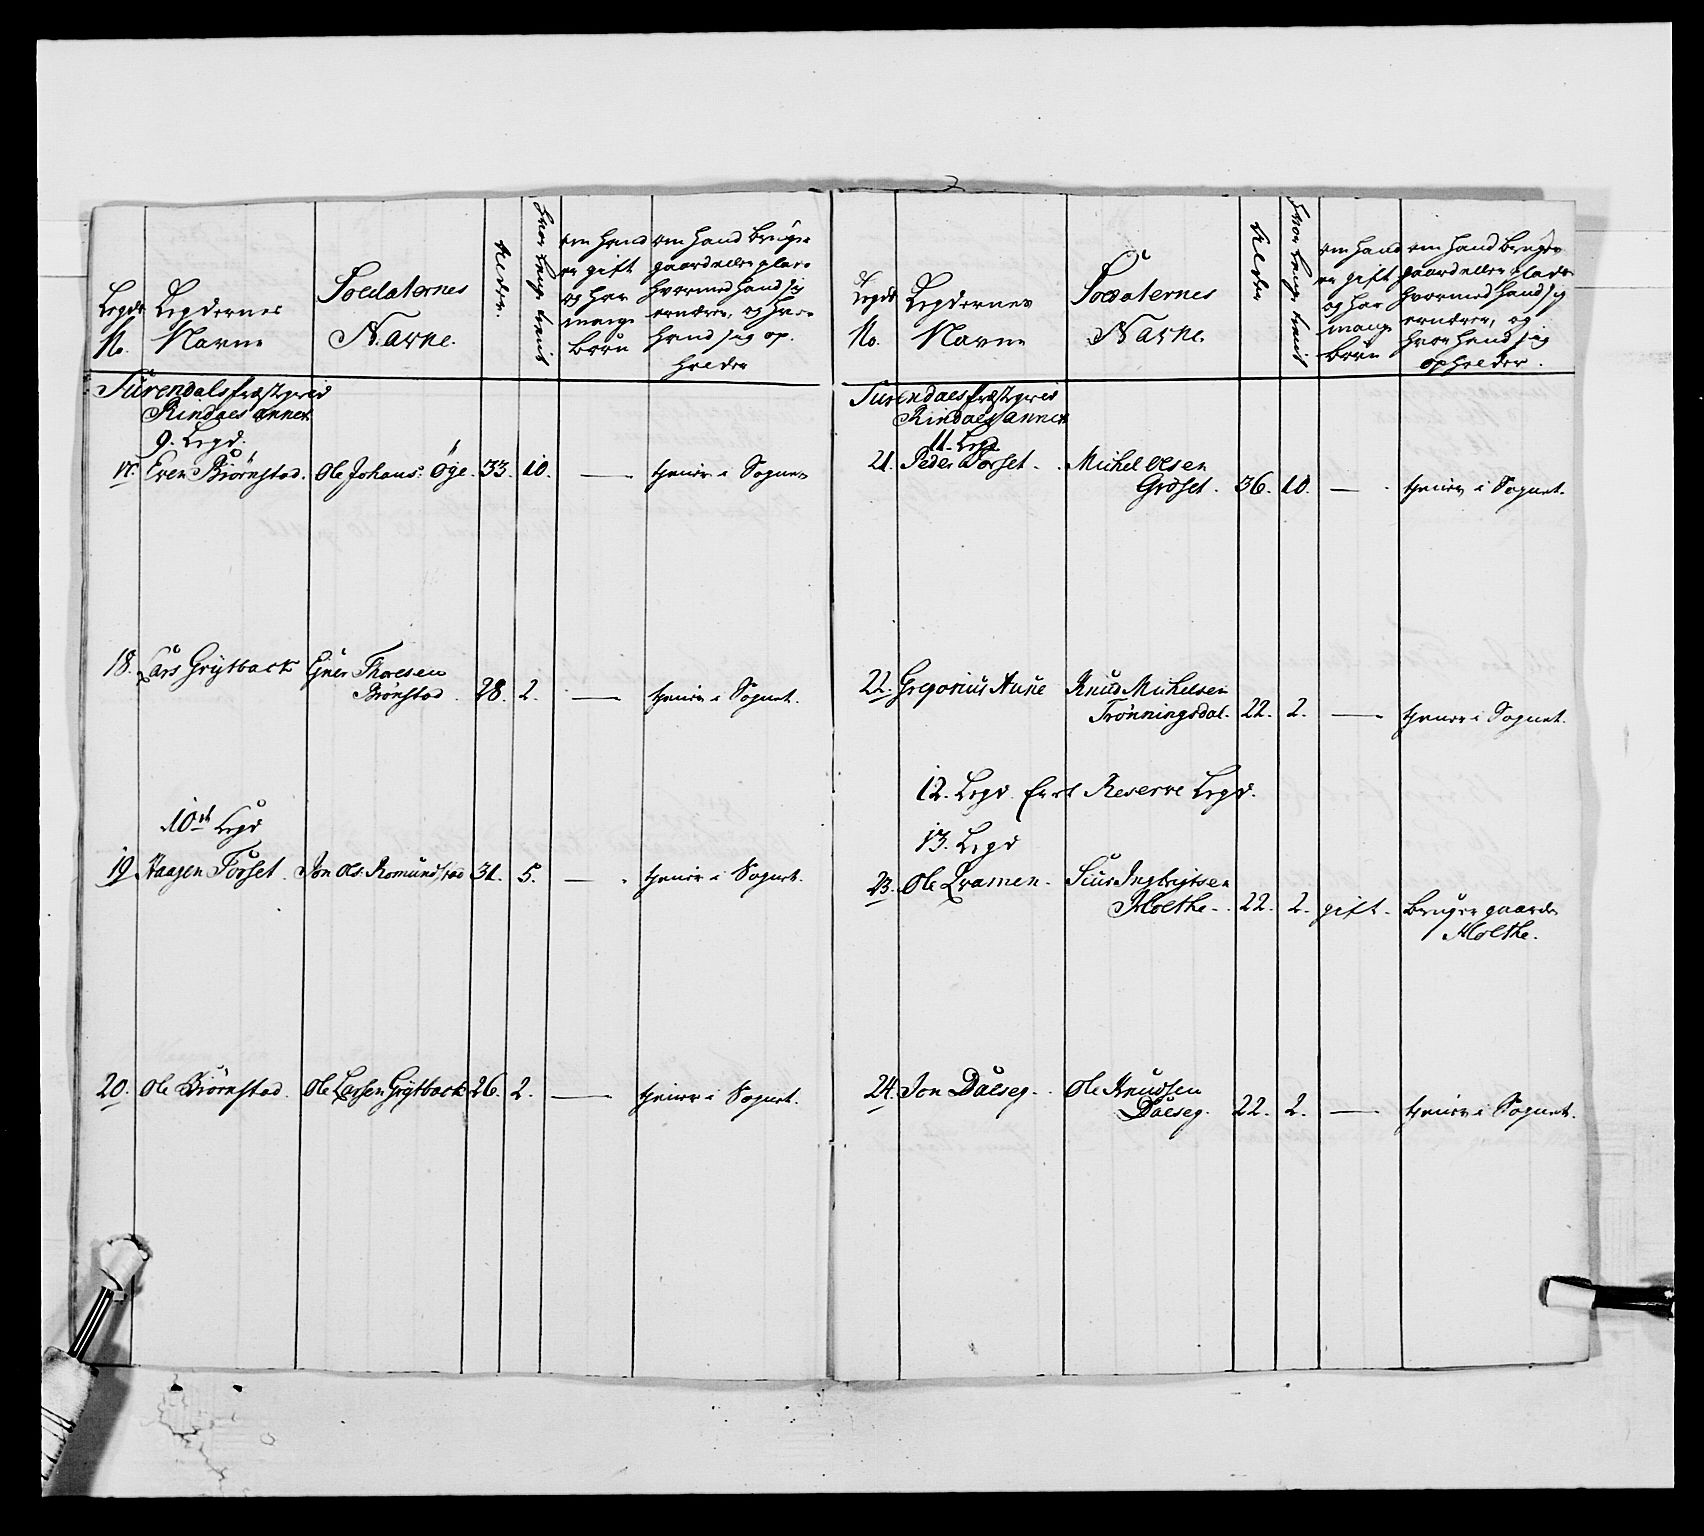 Legds
No.
Legdernes
Navne
Soldaternes
Navne.
Alder.
hvor lenge tient
om hand
er gift
og har
mange
børn
om hand bruger
gaard eller plads
hvormed hand sig
ernærer, og hvor
hand sig op-
holder
Surendals præstegield
Rindals annex
9. Legd.
17. Even Biørnstad. Ole Johans: Øye. 33. 10. — tjener i Sognet
18. Lars Grytback Ejner Thoresen
Brønstad. 28. 2. — tjener i Sognet.
10de Legd
19 Haagen Torset. Jon Ols. Romundstad 31. 5. — tjener i Sognet.
20. Ole Biørnstad. Ole Larsen Grytback 26. 2. — tjener i Sognet.
Legds
No.
Legdernes
Navne
Soldaternes
Navne.
Alder
hvor lenge tient
om hand
er gift
og har
mange
børn
om hand bruger
gaard eller plads
hvormed hand sig
ernærer, og
hvor hand sig
opholder.
Surendals præstegield
Rindals annex
11. Legd
21. Peder Torset. Michel Olsen
Grøset. 36. 10. — tjener i Sognet.
22. Gregorius Aune Knud Michelsen
Trønningsdal. 22. 2. — tjener i Sognet.
12. Legd er et Reserve Legd.
13. Legd
23. Ole Qvamen. Siur Ingbrigtsen
Holthe. 22. 2. gift. bruger gaarden
Holthe.
24. Jon Dalseg. Ole Knudsen
Dalseg. 22. 2. — tjener i Sognet.